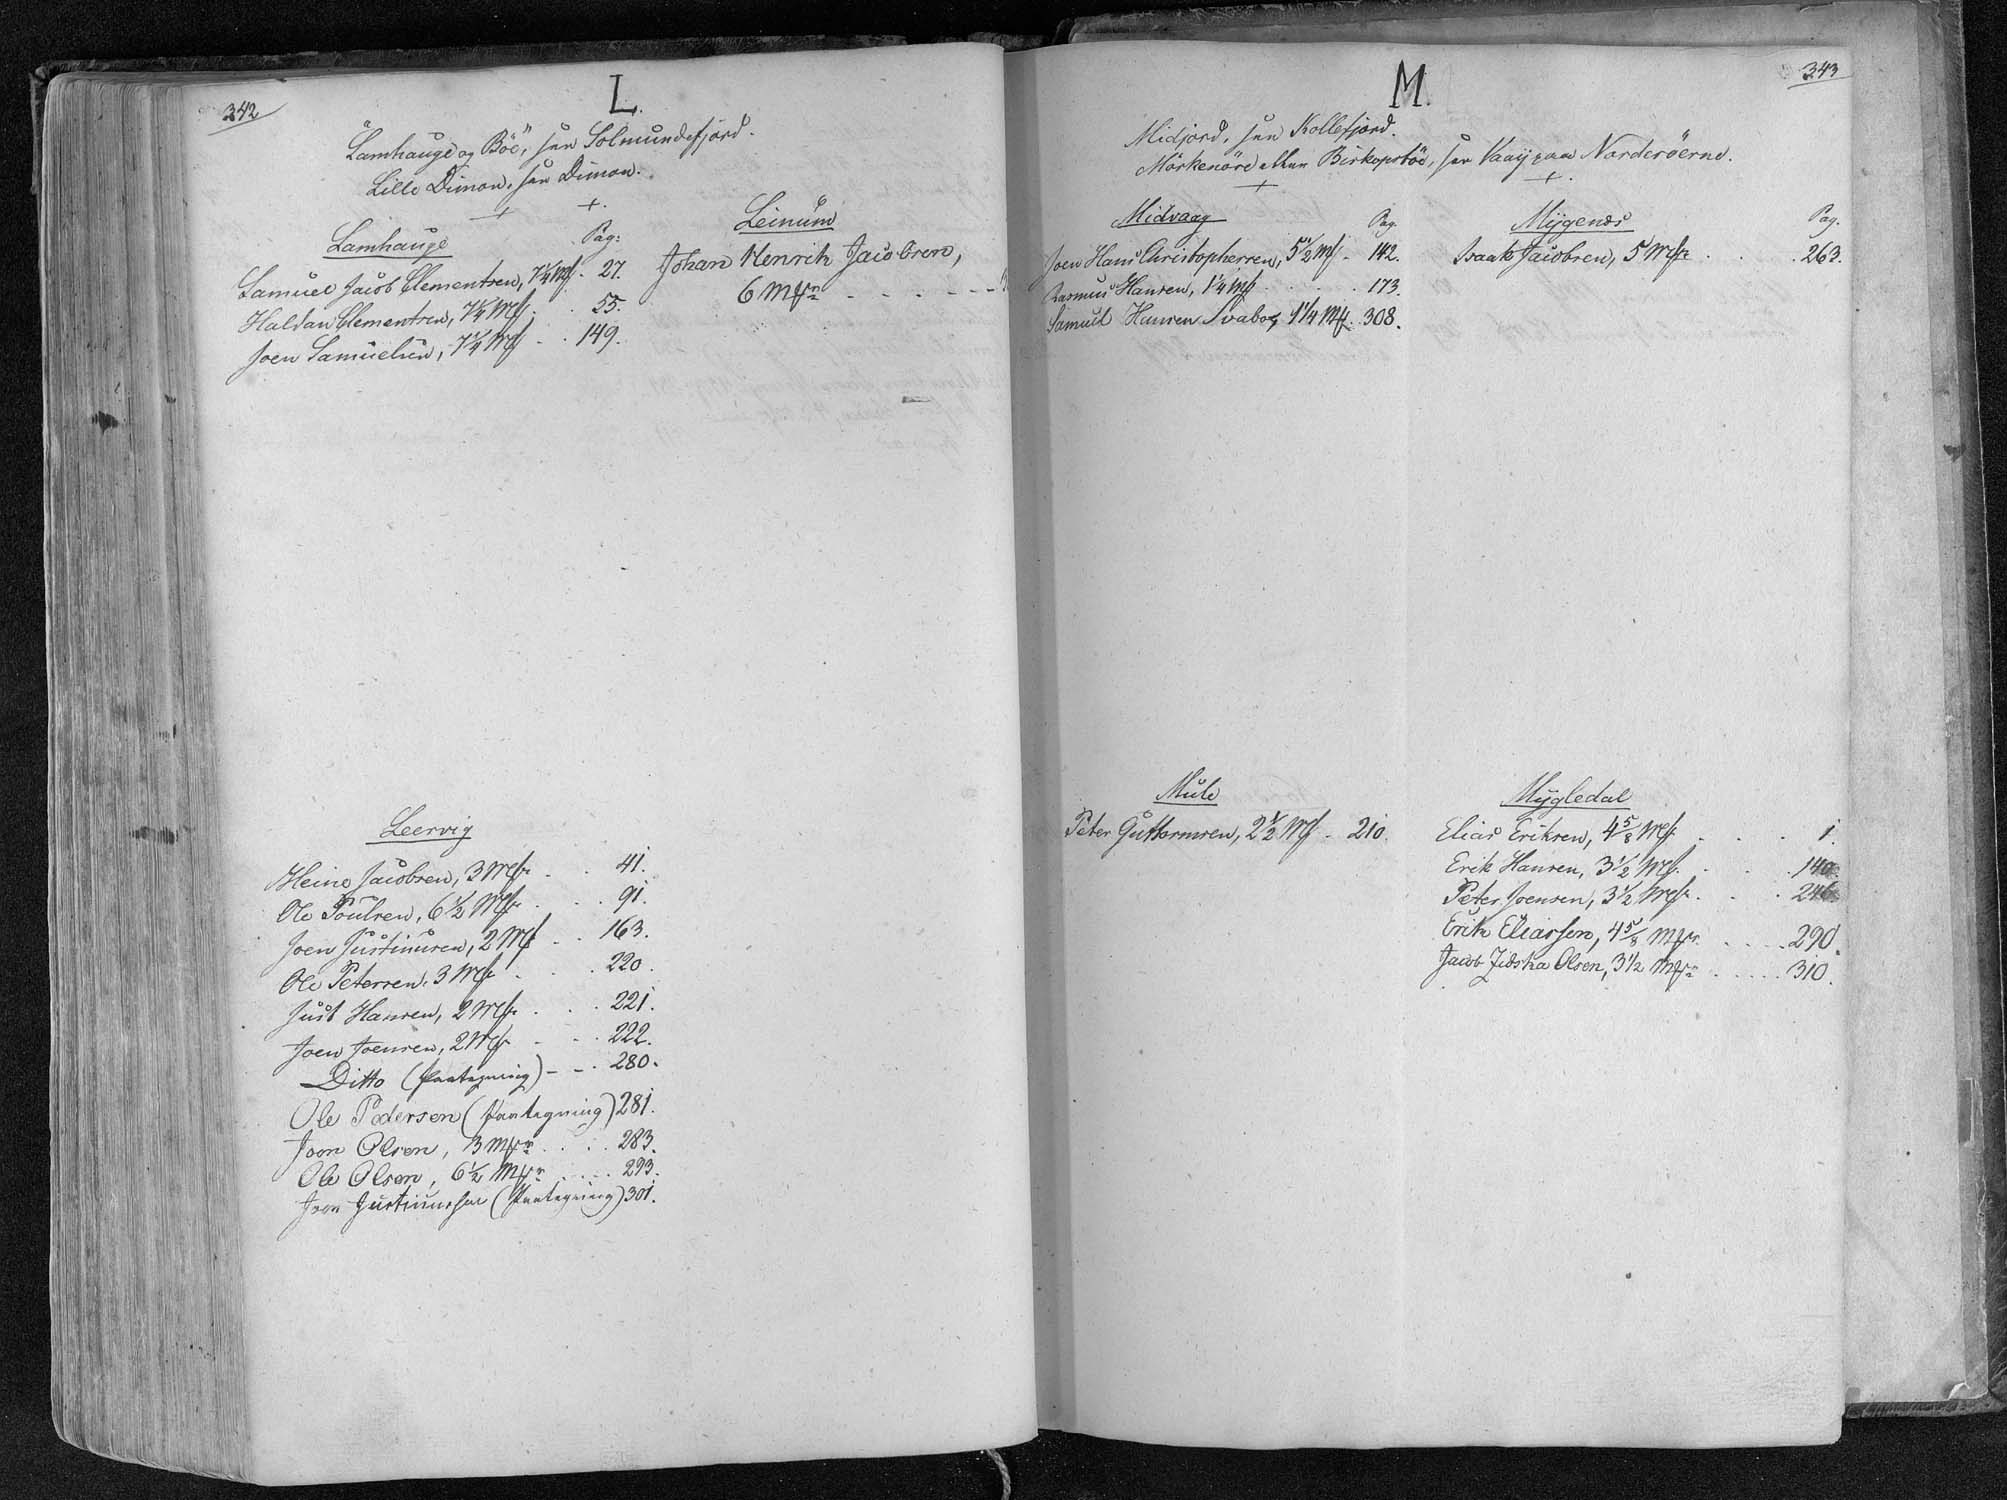 342
L.
"Lamhauge og Böe", see Solmundefjord.
Lille Dimon, see Dimon.
+ +.
Lamhauge
Pag:
Samuel Jacob Clementsen, 7 1/4 Mk. 27.
Haldan Clementsen, 7 1/4 Mk. . 55.
Joen Samuelsen, 7 1/4 Mk . . 149.
Leinum
Johan Henrik Jacobsen,
6 Mkr - - - -
Leervig
Heine Jacobsen, 3 Mkr . . 41.
Ole Poulsen, 6 1/2 Mkr . . . 91.
Joen Justinusen, 2 Mk . . 163.
Ole Petersen, 3 Mkr . . . 220.
Just Hansen, 2 Mkr . . . 221.
Joen Joensen, 2 Mkr . . . 222.
Ditto (Paategning) - - . 280.
Ole Pedersen (Paategning) 281.
Joen Olsen, 3 Mkr . . . . 283.
Ole Olsen, 6 1/2 Mkr . . . . 293.
Joen Justinussen (Paategning) 301.
343
M.
Midjord, see Kollefjord.
Mörkenöre eller Biskopsböe, see Vaaj paa Norderöerne.
+ +.
Midvaag
Pag.
Joen Hans Christophersen, 5 1/2 Mk. 142.
Rasmus Hansen, 1 1/4 Mk . . . . 173.
Samuel Hansen Svaboe, 1 1/4 Mk. 308.
Mygenæs
Pag.
Isaak Jacobsen, 5 Mkr . . . 263.
Mule
Peter Guttormsen, 2 1/2 Mk . 210.
Mygledal
Elias Eriksen, 4 5/8 Mkr . . . 1.
Erik Hansen, 3 1/2 Mk. . . . 140.
Peter Joensen, 3 1/2 Mkr. . . 246.
Erik Eliassen, 4 5/8 Mkr. . . . . 290.
Jacob Olsen, 3 1/2 Mkr . . . . . 310.